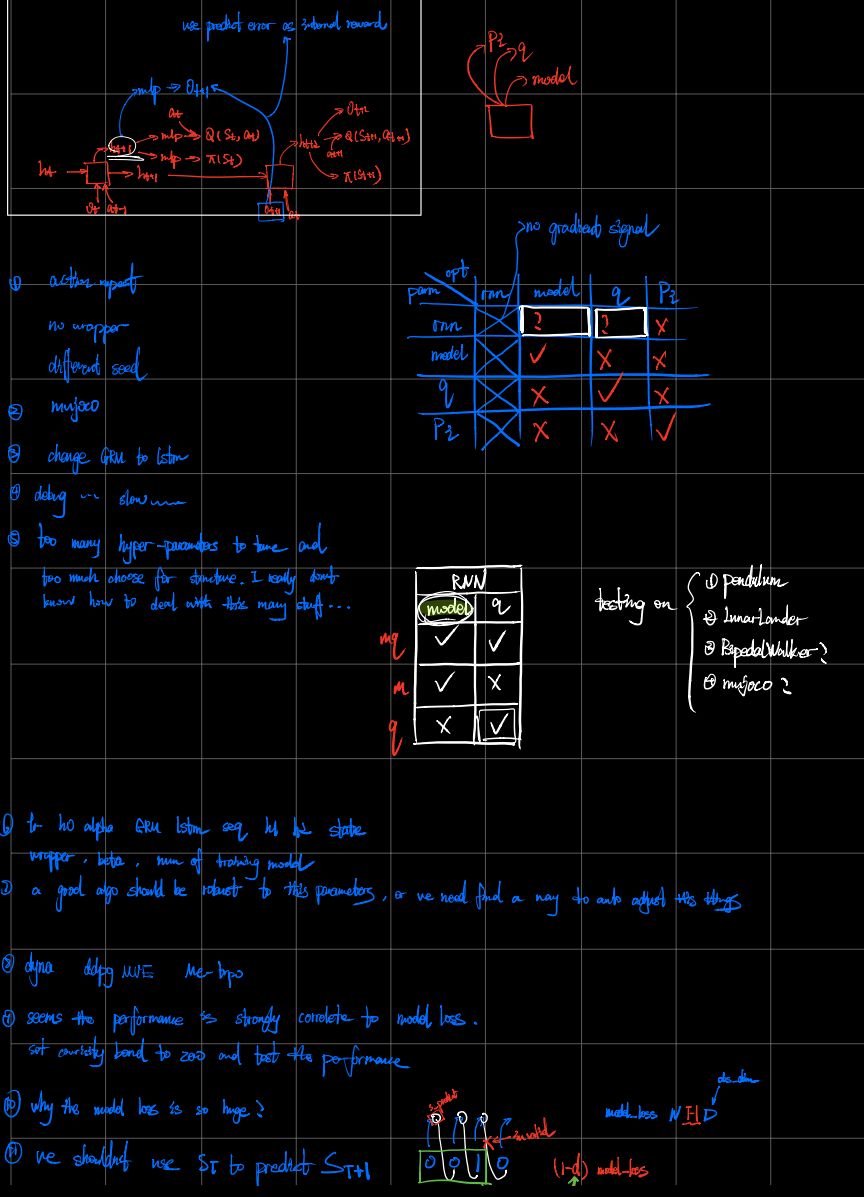 use predict error as internal reward
mlp → Ot+1
at
mlp → Q(St, at)
mlp → π(St)
ht → ht+1
Ot at-1
ht+2
Ot+2
Q(St+1, at+1)
at+1
π(St+1)
Ot+1 at
Pi
q
model
no gradient signal
opt
param rnn model q Pi
rnn ? ? X
model ✓ X X
q X ✓ X
Pi X X ✓
① action repeat
no wrapper
different seed
② mujoco
③ change GRU to lstm
④ debug ... slow
⑤ too many hyper-parameters to tune and
too much choose for structure. I really don't
know how to deal with this many stuff...
RNN
model q
mq ✓ ✓
m ✓ X
q X ✓
testing on
① Pendulum
② LunarLander
③ BipedalWalker?
④ mujoco?
⑥ lr h0 alpha GRU lstm seq state
wrapper. beta. num of training model
⑦ a good algo should be robust to this parameters, or we need find a way to auto adjust this things
⑧ dyna ddpg MVE Me-trpo
⑨ seems the performance is strongly correlate to model loss.
set to zero and test the performance
⑩ why the model loss is so huge?
⑪ we shouldn't use ST to predict ST+1
S_predict
invalid
0 0 1 0
obs_dim
model_loss N H D
(1-d) model-loss